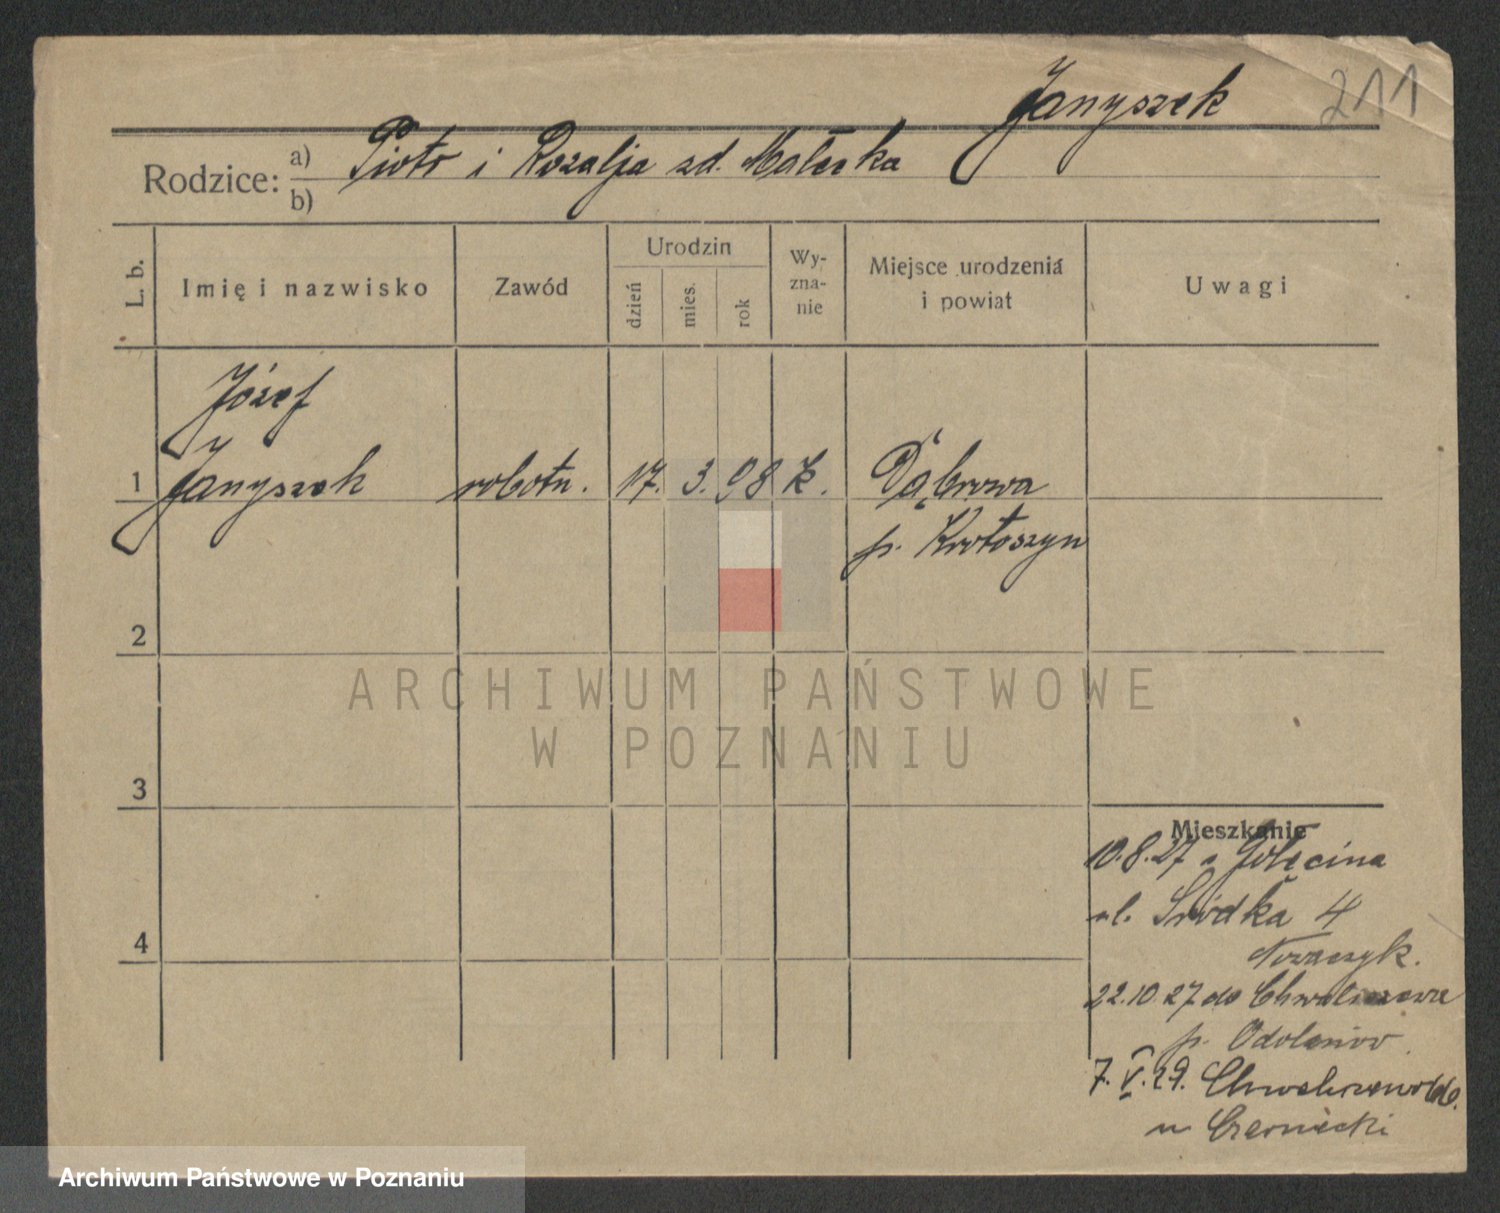 Janyszek 211
Rodzice: a) b) Piotr i Rozalja zd. Małecka
L. b. Imię i nazwisko Zawód Urodzin dzień mies. rok Wy-zna-nie Miejsce urodzenia i powiat Uwagi
Józef
1 Janyszek robotn. 17. 3. 98 k. Dąbrowa
p. Krotoszyn
2
ARCHIWUM PAŃSTWOWE
W POZNANIU
3
Mieszkanie
10.8.27 z Golęcina
ul. Śródka 4
4
Nowaczyk.
22.10.27 do Chwaliszewa
p. Odolanów
7.V.29. Chwaliszewo
u Czarnecki
Archiwum Państwowe w Poznaniu